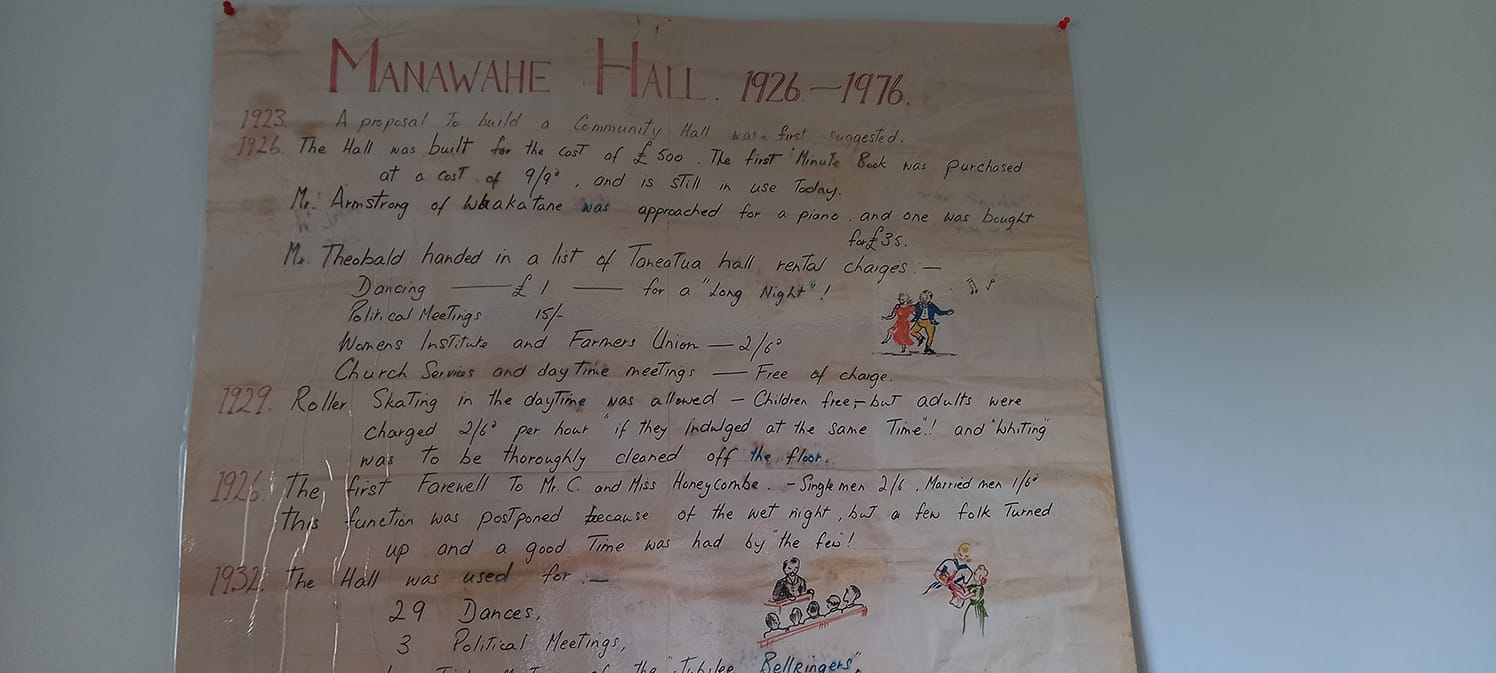 MANAWAHE HALL. 1926.—1976.
1923. A proposal To build a Community Hall was first suggested.
1926. The Hall was built for the cost of £500. The first 'Minute Book was purchased
at a cost of 9/9ᵈ, and is still in use Today.
Mr. Armstrong of Whakatane was approached for a piano, and one was bought
for £35.
Mr. Theobald handed in a list of Taneatua hall rental charges:—
Dancing —— £1 —— for a "Long Night"!
Political Meetings 15/-
Womens Institute and Farmers Union — 2/6ᵈ
Church Services and day Time meetings — Free of charge.
1929. Roller Skating in the dayTime was allowed – Children free,– but adults were
charged 2/6ᵈ per hour "if they indulged at the same Time"! and "Whiting"
was to be thoroughly cleaned off the floor.
1926. The first Farewell To Mr. C. and Miss Honeycombe. – Single men 2/6, Married men 1/6ᵈ
This function was postponed because of the wet night, but a few folk Turned
up and a good Time was had by "the few"!
1932. The Hall was used for :—
29 Dances,
3 Political Meetings,
of the "Jubilee Bellringers",